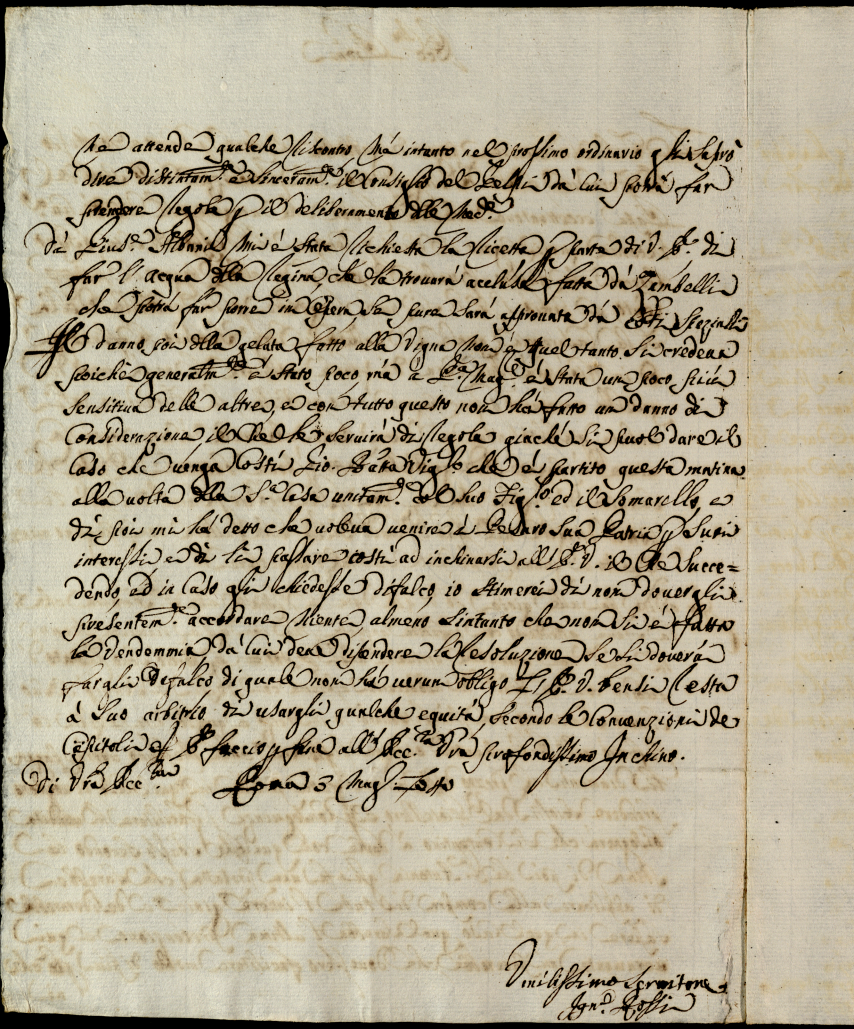 ne attende qualche riscontro, mà intanto nel prossimo ordinario gli saprò
dire distintam.e e sinceram.e il Consiglio del da lui potrà far
prendere regola p il deliberamento delle Med.e
Dà Gius.e Albani mi è stata richiesta la ricetta p parte di V. E. di
far l'acqua della Regina, che la trouarà acclusa fatta dà Zambelli
che potrà far porre in opera, se pure sarà approuata dà cotesti Speziali
Il danno poi della gelata fatto alla Vigna non è quel tanto si credeua
poiche generalm.e è stato poco, mà a è stata un poco più
sensitiua delle altre, e con tutto questo non hà fatto un danno di
Considerazione il che le seruirà di regola giachè si puol dare il
Caso che uenga costì Gio. Batta che è partito questa matina
alla uolta della S.a Casa unitam.e col suo Fig.o ed il Somarello, e
di poi mi hà detto che uoleua uenire à Pesaro sua Patria p suoi
interessi e di lì passare costì ad inchinarsi all' E. V. il che succe=
dendo, ed in caso gli chiedesse difalco, io stimerei di non douergli
presentem.e accordare niente, almeno sintanto che non si è fatta
la Vendemmia, dà lui deue dipendere la resoluzione se si douerà
fargli difalco di quale non hà uerun obligo L' E. V. bensì resta
à suo arbitrio di usargli qualche equità, secondo le Conuenzioni de
Capitoli, e p faccio p fine all' Ecc.za Vra profondissimo Inchino.
Di Vra Ecc.za Roma 3 Mag.o
Umilissimo Seruitore
Ign.o Rossi